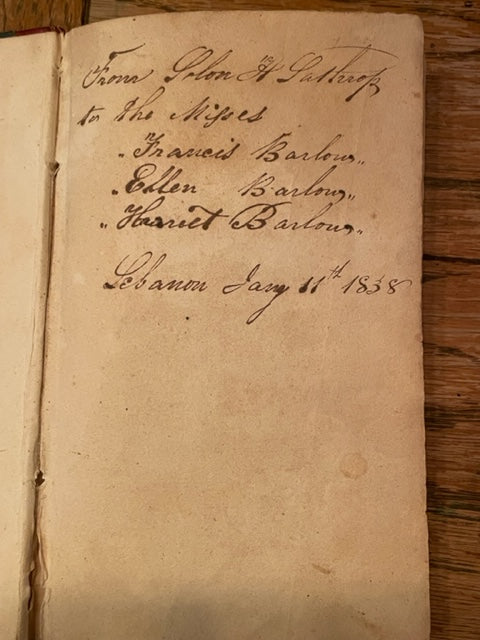 From Solon H Lathrop
to the Misses
„Francis Barlow„
„Ellen Barlow„
„Harriet Barlow„
Lebanon Jany 11th 1838